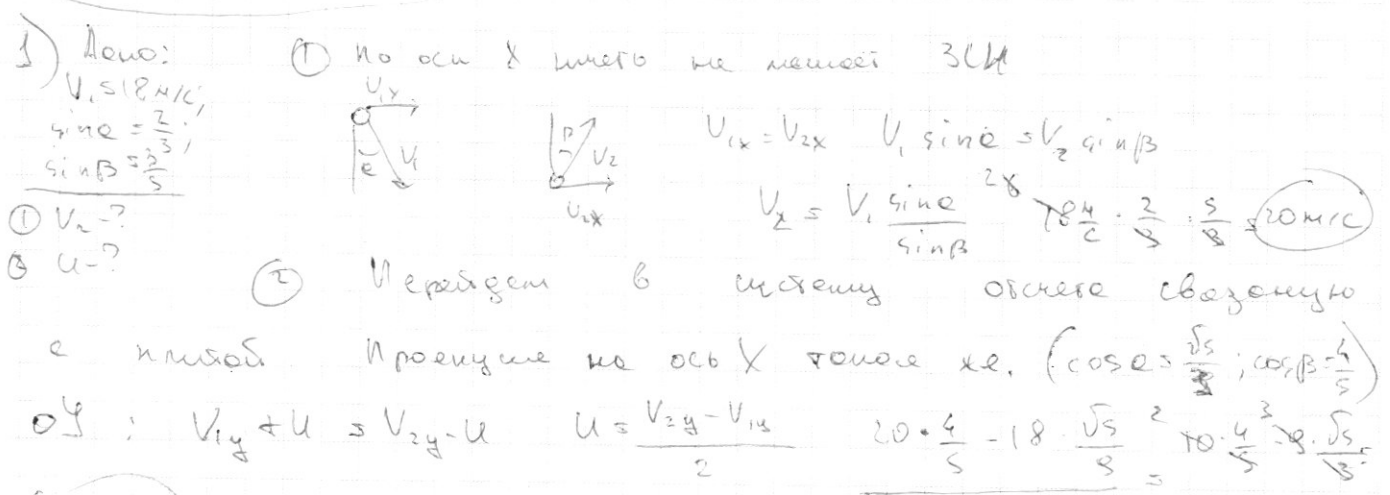 1) Дано:
V₁ = 18 м/с;
sinα = 2/3;
sinβ = 3/5
① V₂ - ?
② u - ?
① По оси X ничего не мешает ЗСИ
V₁ₓ
α V₁
β V₂
V₂ₓ
V₁ₓ = V₂ₓ V₁ sinα = V₂ sinβ
V₂ = V₁ sinα/sinβ 18 м/с · 2/3 · 5/3 = 20 м/с
② Перейдем в систему отсчета связаную
с плитой. Проекция на ось X такая же. (cosα = √5/3; cosβ = 4/5)
oY: V₁y + u = V₂y - u u = (V₂y - V₁y)/2 20 · 4/5 - 18 · √5/3 = 10 · 4/5 - 9 · √5/3 =